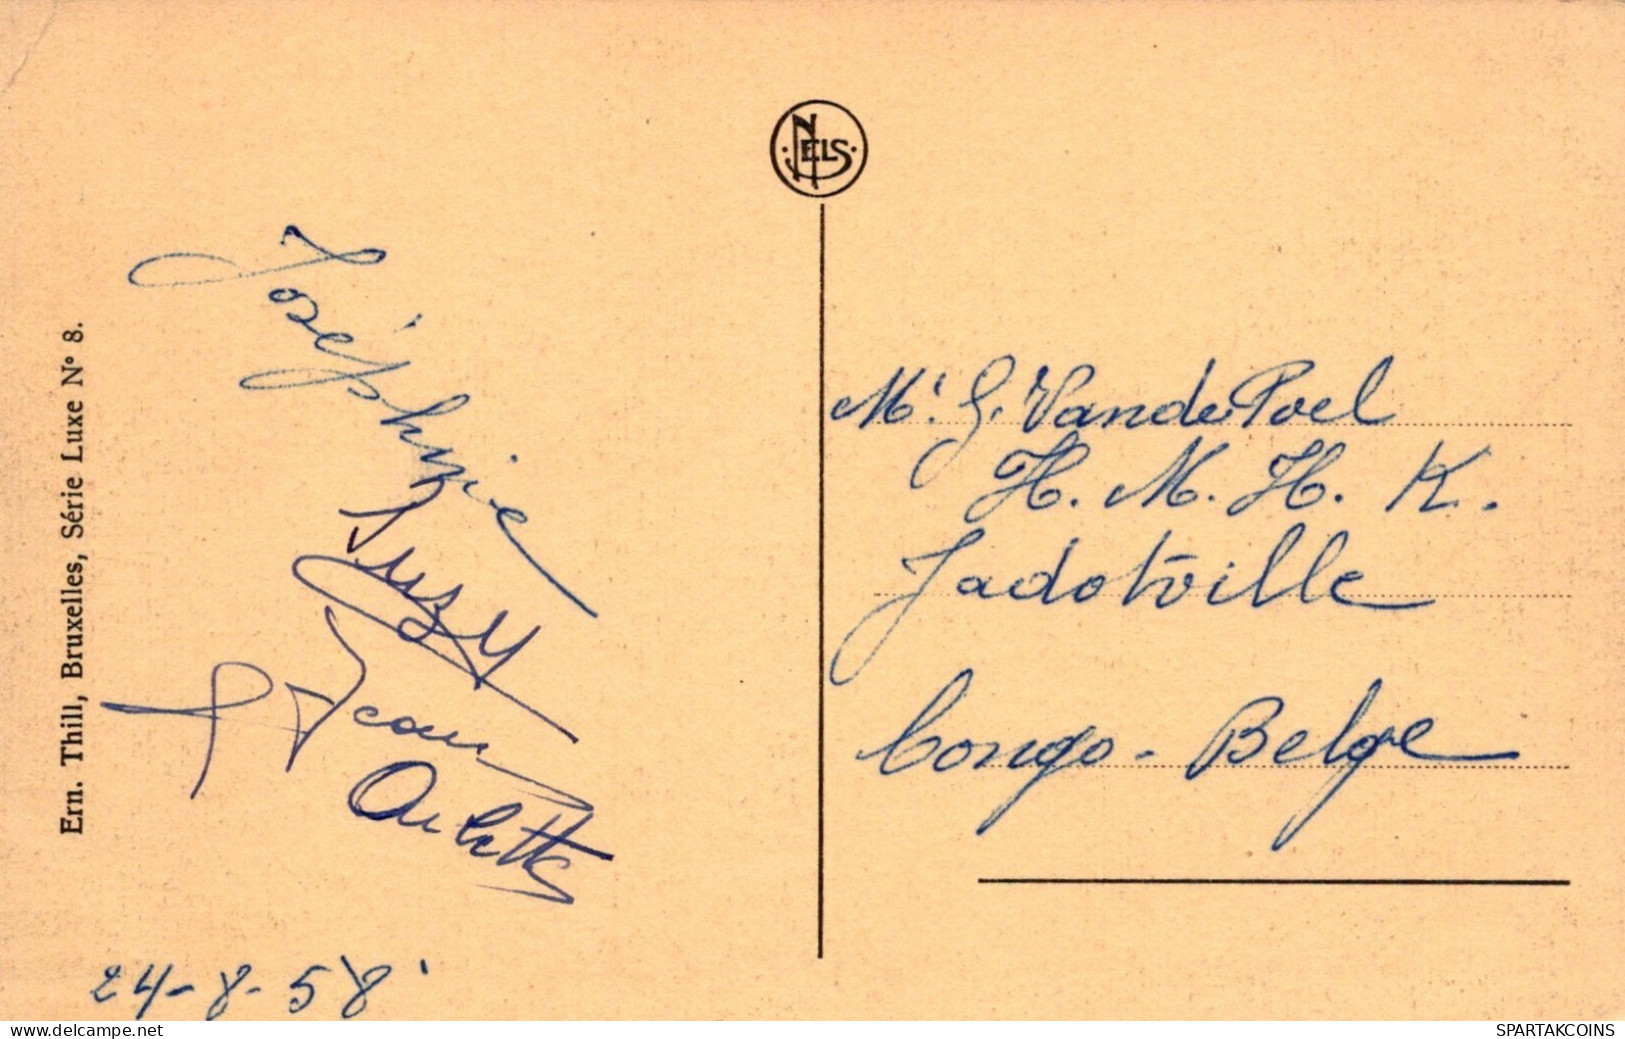 NELS
Ern. Thill, Bruxelles, Série Luxe N° 8.
Joséphine
Suzy
Jean
Arlette
24-8-58
Mr. G. Vander Poel
H. M. H. K.
Jadotville
Congo-Belge
delcampe.net
SPARTAKCOINS